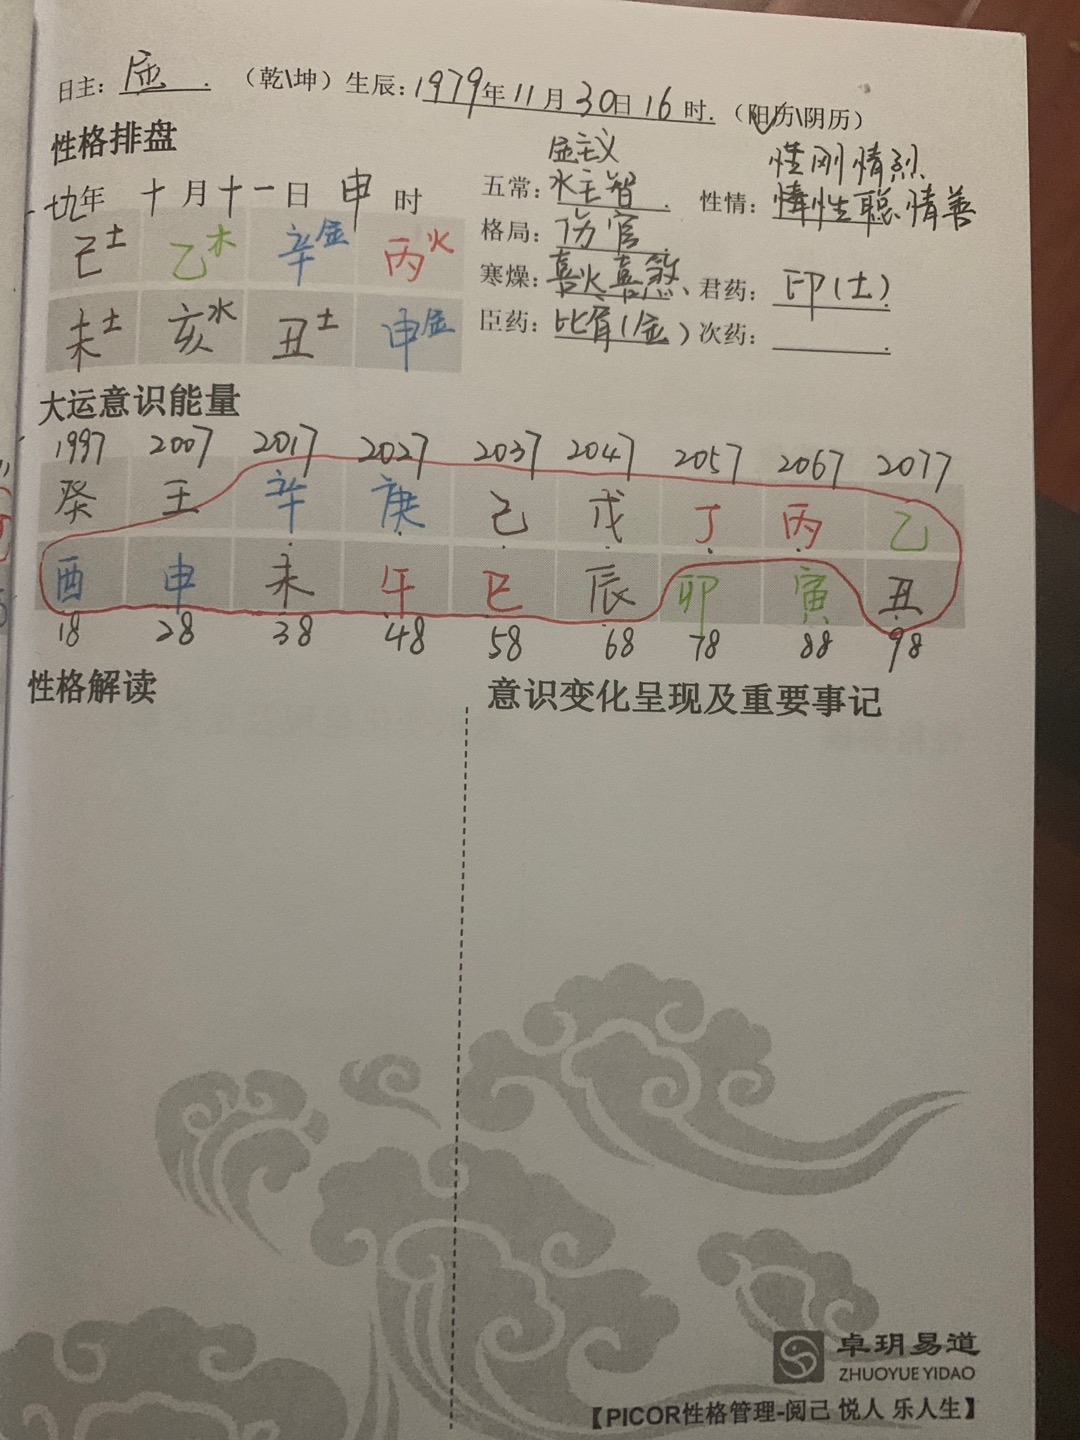 日主：金.（乾\坤）生辰：1979年11月30日16时.（阳历\阴历）
性格排盘
一九年 十月十一日 申时
己土 乙木 辛金 丙火
未土 亥水 丑土 申金
金主义
五常：水主智.
格局：伤官
寒燥：喜火喜煞、
臣药：比肩(金)
性刚情烈、
性情：性聪、情善
君药：印(土).
次药：.
大运意识能量
1997 2007 2017 2027 2037 2047 2057 2067 2077
癸 壬 辛 庚 己 戊 丁 丙 乙
酉 申 未 午 巳 辰 卯 寅 丑
18 28 38 48 58 68 78 88 98
性格解读
意识变化呈现及重要事记
卓玥易道
ZHUOYUE YIDAO
【PICOR性格管理-阅己 悦人 乐人生】